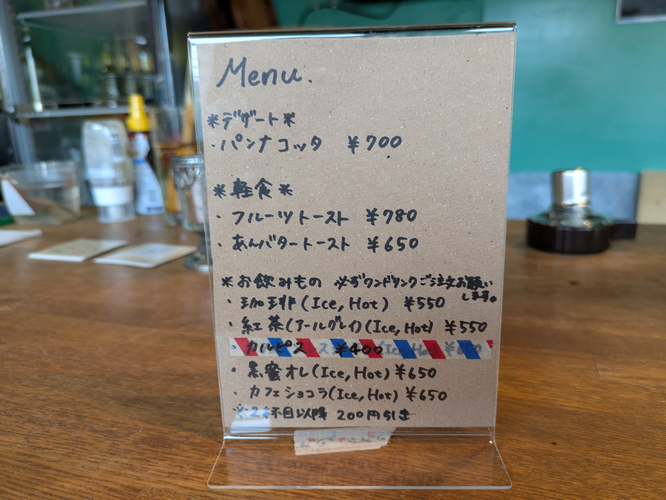 Menu.
*デザート*
・パンナコッタ ¥700
*軽食*
・フルーツトースト ¥780
・あんバタートースト ¥650
*お飲みもの 必ずワンドリンクご注文お願いします。
・珈琲(Ice, Hot) ¥550
・紅茶(アールグレイ)(Ice, Hot) ¥550
・カルピス ¥400
・黒蜜オレ(Ice, Hot) ¥650
・カフェショコラ(Ice, Hot) ¥650
※2杯目以降 200円引き